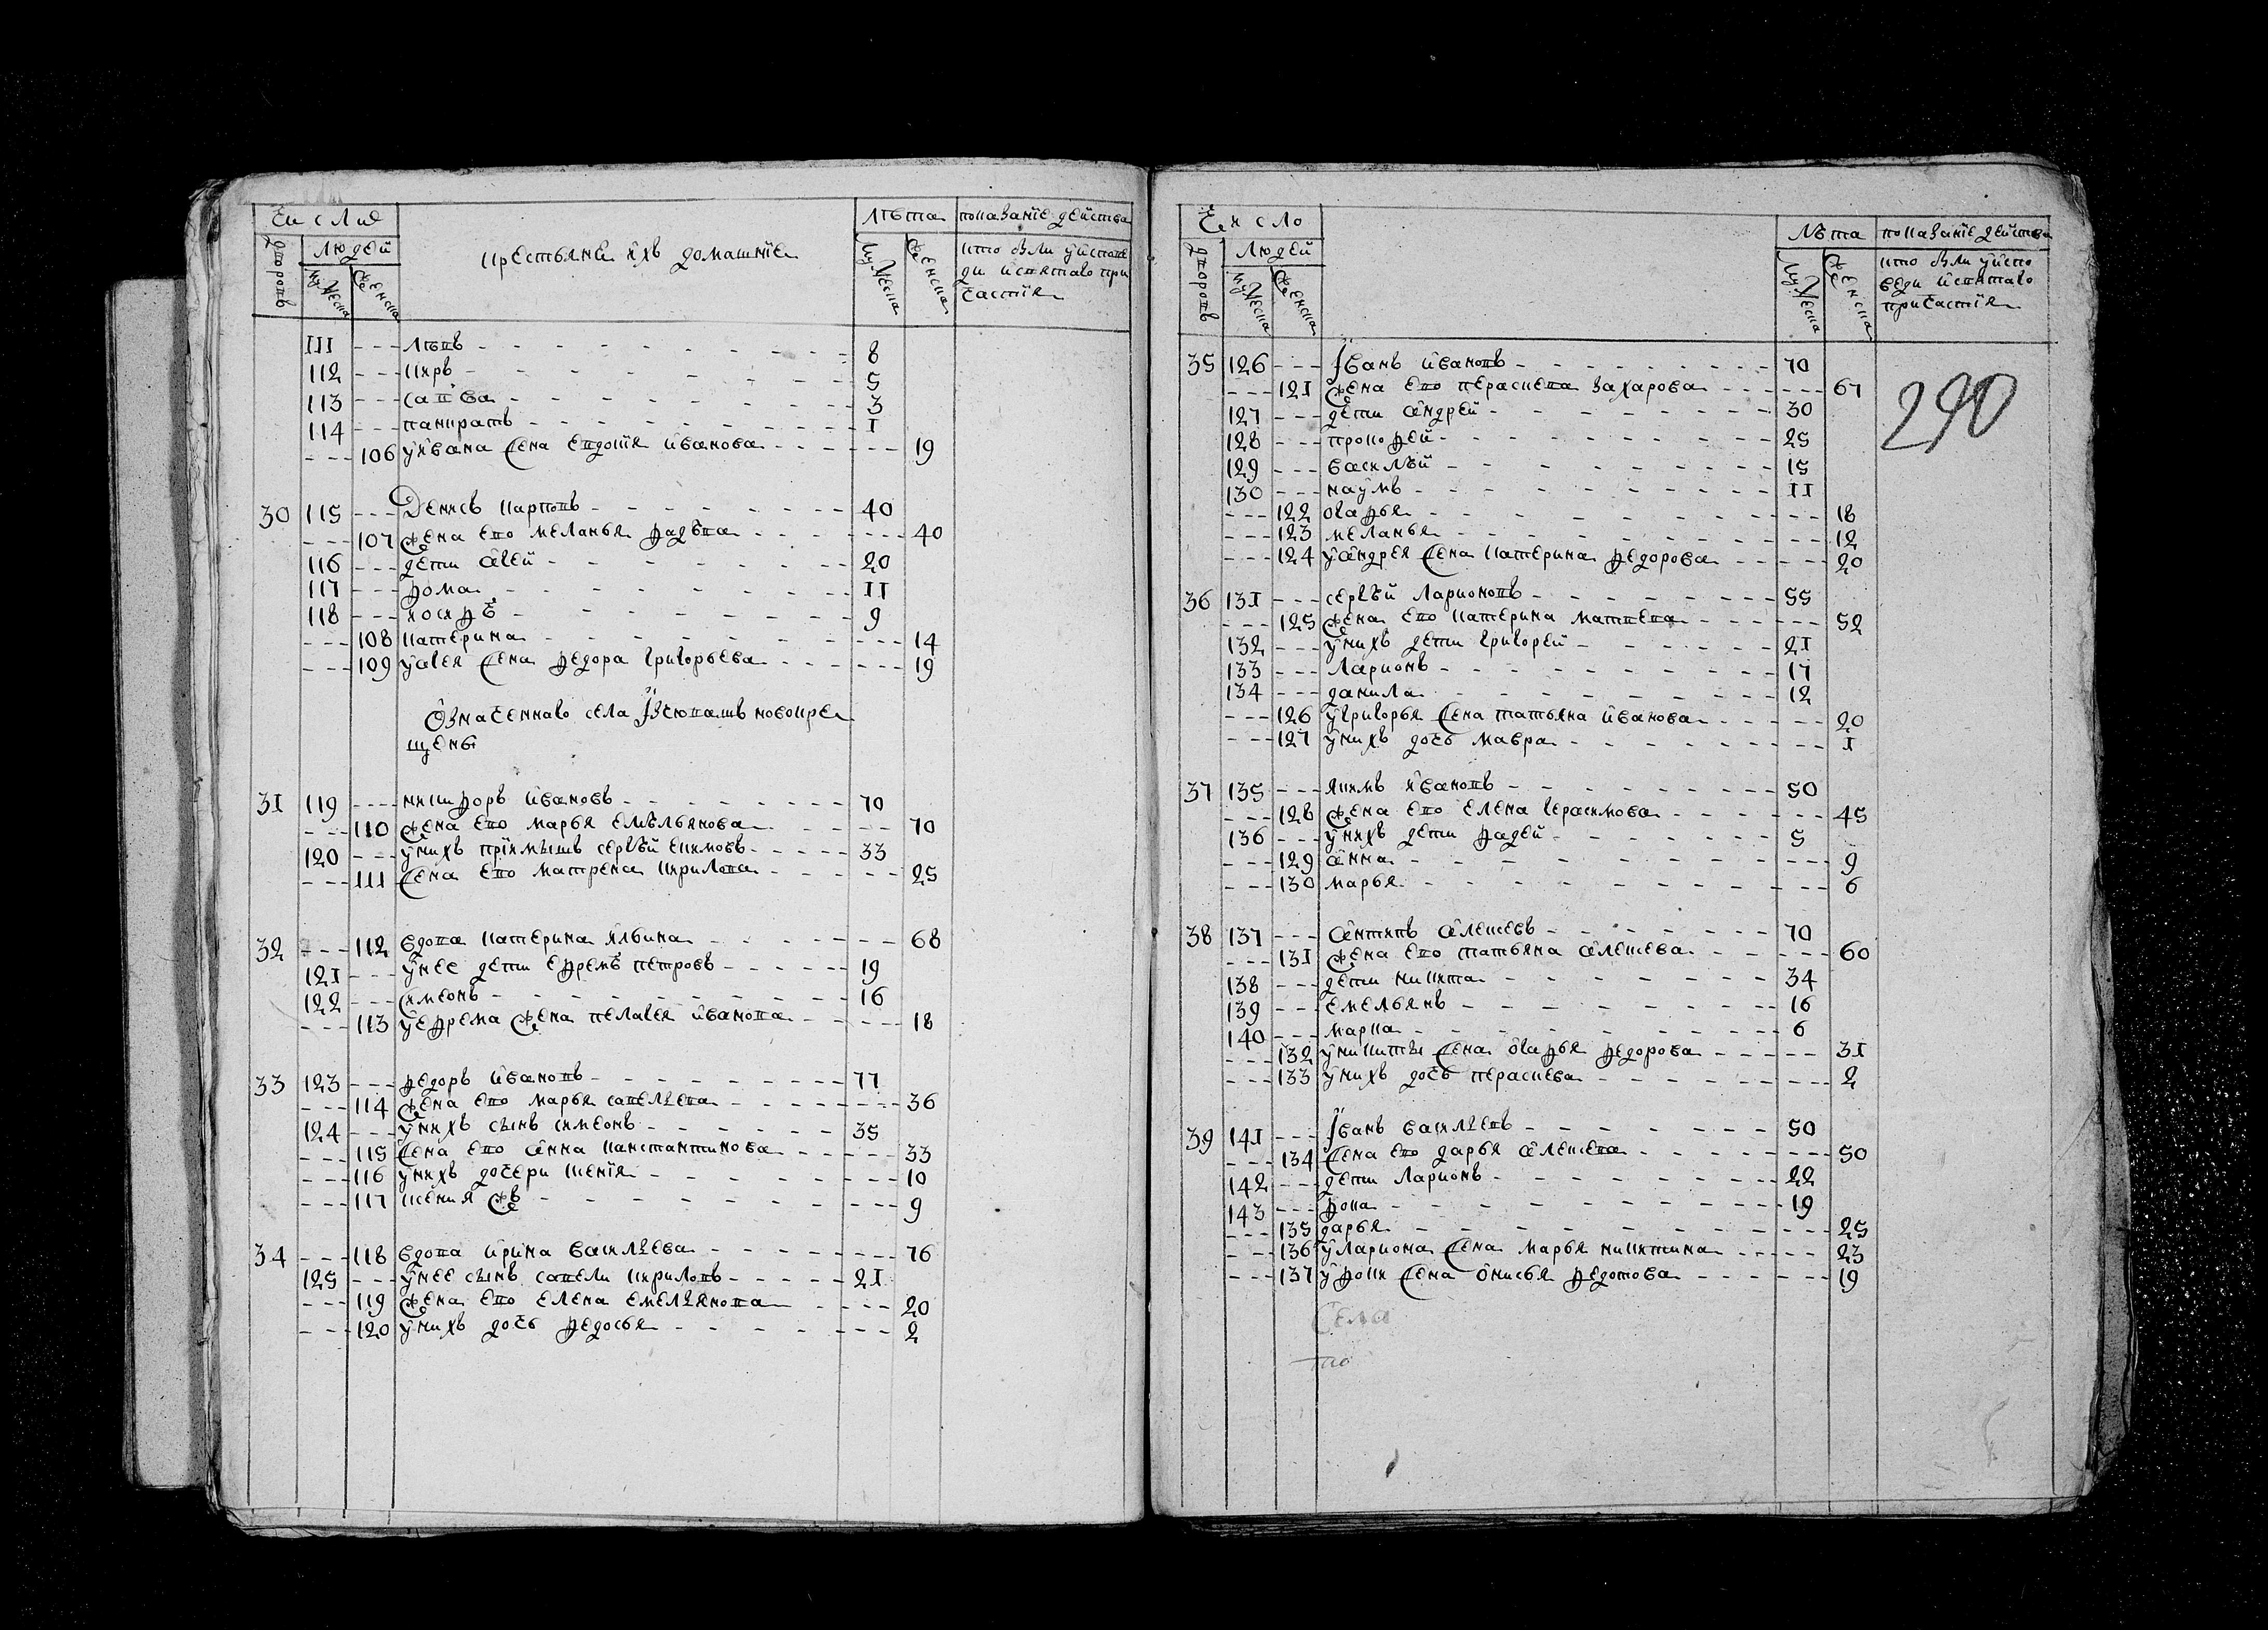 Число
Дворовъ
Людей
Мужеска
Женска
крестьяне ихъ домашние
Лѣта
Мужеска
Женска
показание действа
кто был у испове
ди и святаго при
частия
111 --- Левъ --- 8
112 --- киръ --- 5
113 --- савва --- 3
114 --- панкратъ --- 1
--- 106 у ивана жена евдокия иванова --- 19
30 115 --- Денисъ карповъ --- 40
--- 107 жена ево меланья фадѣева --- 40
116 --- дети агей --- 20
117 --- фома --- 11
118 --- иосифъ --- 9
--- 108 катерина --- 14
--- 109 у агея жена федора григорьева --- 19
Означеннаго села новокре
щены
31 119 --- никифоръ ивановъ --- 70
--- 110 жена ево марья емѣльянова --- 70
120 --- у нихъ приимышъ сергѣй екимовъ --- 33
--- 111 жена ево матрена кирилова --- 25
32 --- 112 вдова катерина ильина --- 68
121 --- у нее дети ефремъ петровъ --- 19
122 --- симеонъ --- 16
--- 113 у ефрема жена пелагея иванова --- 18
33 123 --- федоръ ивановъ --- 77
--- 114 жена ево марья савельева --- 36
124 --- у нихъ сынъ симеонъ --- 35
--- 115 жена ево анна канстантинова --- 33
--- 116 у нихъ дочери ксения --- 10
--- 117 ксения жъ --- 9
34 --- 118 вдова ирина васильева --- 76
125 --- у нее сынъ савели кириловъ --- 21
--- 119 жена ево елена емельянова --- 20
--- 120 у нихъ дочь федосья --- 2
Число
Дворовъ
Людей
Мужеска
Женска
Лѣта
Мужеска
Женска
показание действа
кто был у испо
веди и святаго
причастия
290
35 126 --- Иванъ ивановъ --- 70
--- 121 жена ево пераскева захарова --- 67
127 --- дети андрей --- 30
128 --- прокофей --- 25
129 --- василѣй --- 15
130 --- наумъ --- 11
--- 122 огафья --- 18
--- 123 меланья --- 12
--- 124 у андрея жена катерина федорова --- 20
36 131 --- сергѣй ларионовъ --- 55
--- 125 жена ево катерина матвева --- 52
132 --- у нихъ дети григорей --- 21
133 --- ларионъ --- 17
134 --- данила --- 12
--- 126 у григорья жена татьяна иванова --- 20
--- 127 у нихъ дочь мавра --- 1
37 135 --- якимъ ивановъ --- 50
--- 128 жена ево елена герасимова --- 45
136 --- у нихъ дети фадей --- 5
--- 129 анна --- 9
--- 130 марья --- 6
38 137 --- антипъ алексевъ --- 70
--- 131 жена ево татьяна алексева --- 60
138 --- дети никита --- 34
139 --- емельянъ --- 16
140 --- марка --- 6
--- 132 у никиты жена огафья федорова --- 31
--- 133 у нихъ дочь пераскева --- 2
39 141 --- Иванъ васильевъ --- 50
--- 134 жена ево дарья алексева --- 50
142 --- дети ларионъ --- 22
143 --- фока --- 19
--- 135 дарья --- 25
--- 136 у лариона жена марья никитина --- 23
--- 137 у фоки жена онисья федотова --- 19